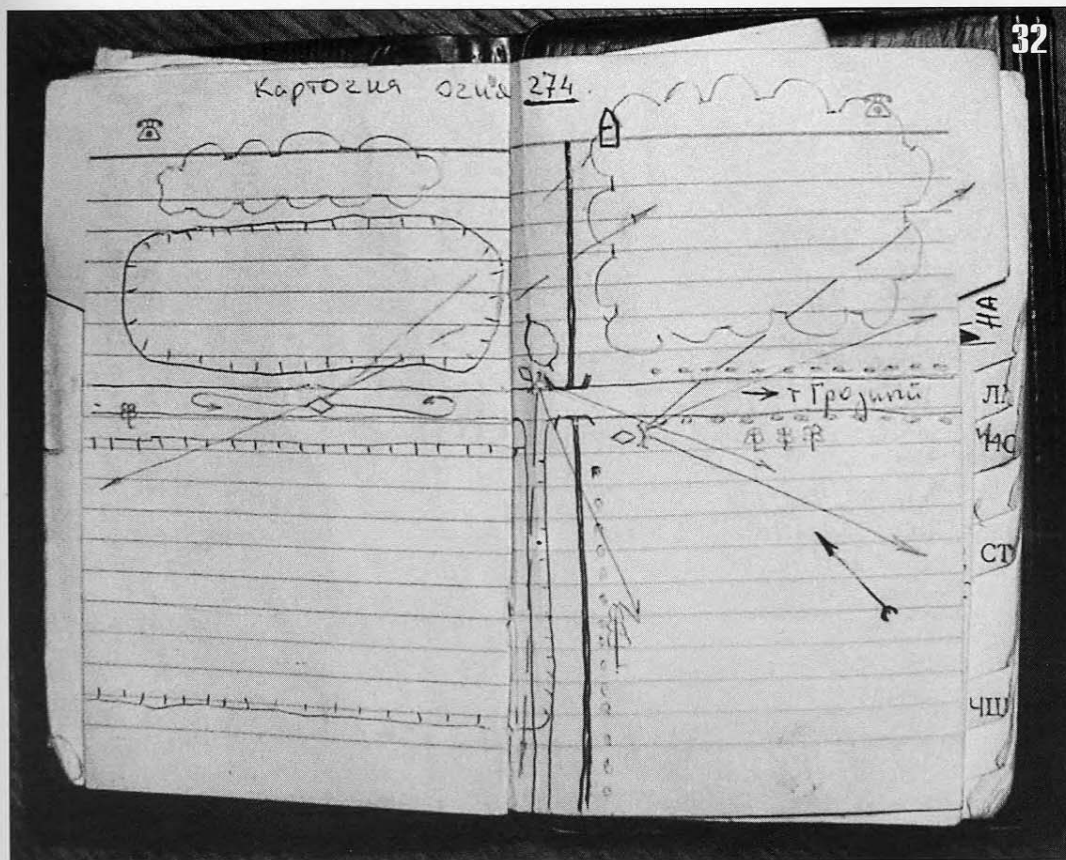 32
Карточка огня 274.
НА
→ г Грозный
ЧАС
СТ
ЧШ